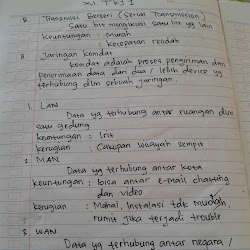 XI TKJ 1
B Transmisi Berseri (Serial Transmission)
Satu bit mengikuti satu bit yg lain
Keuntungan : Murah
: kecepatan rendah
B Jaringan komdat
komdat adalah proses pengiriman dan
penerimaan data dari dua / lebih device yg
terhubung dlm sebuah jaringan
1. LAN
Data yg terhubung antar ruangan dlm
satu gedung
keuntungan : Irit
kerugian : Cakupan wilayah sempit
2 MAN
Data yg terhubung antar kota
keuntungan : bisa antar e-mail chatting
dan video
kerugian : Mahal, Instalasi tdk mudah,
rumit jika terjadi trouble
3 WAN
Data yg terhubung antar negara /